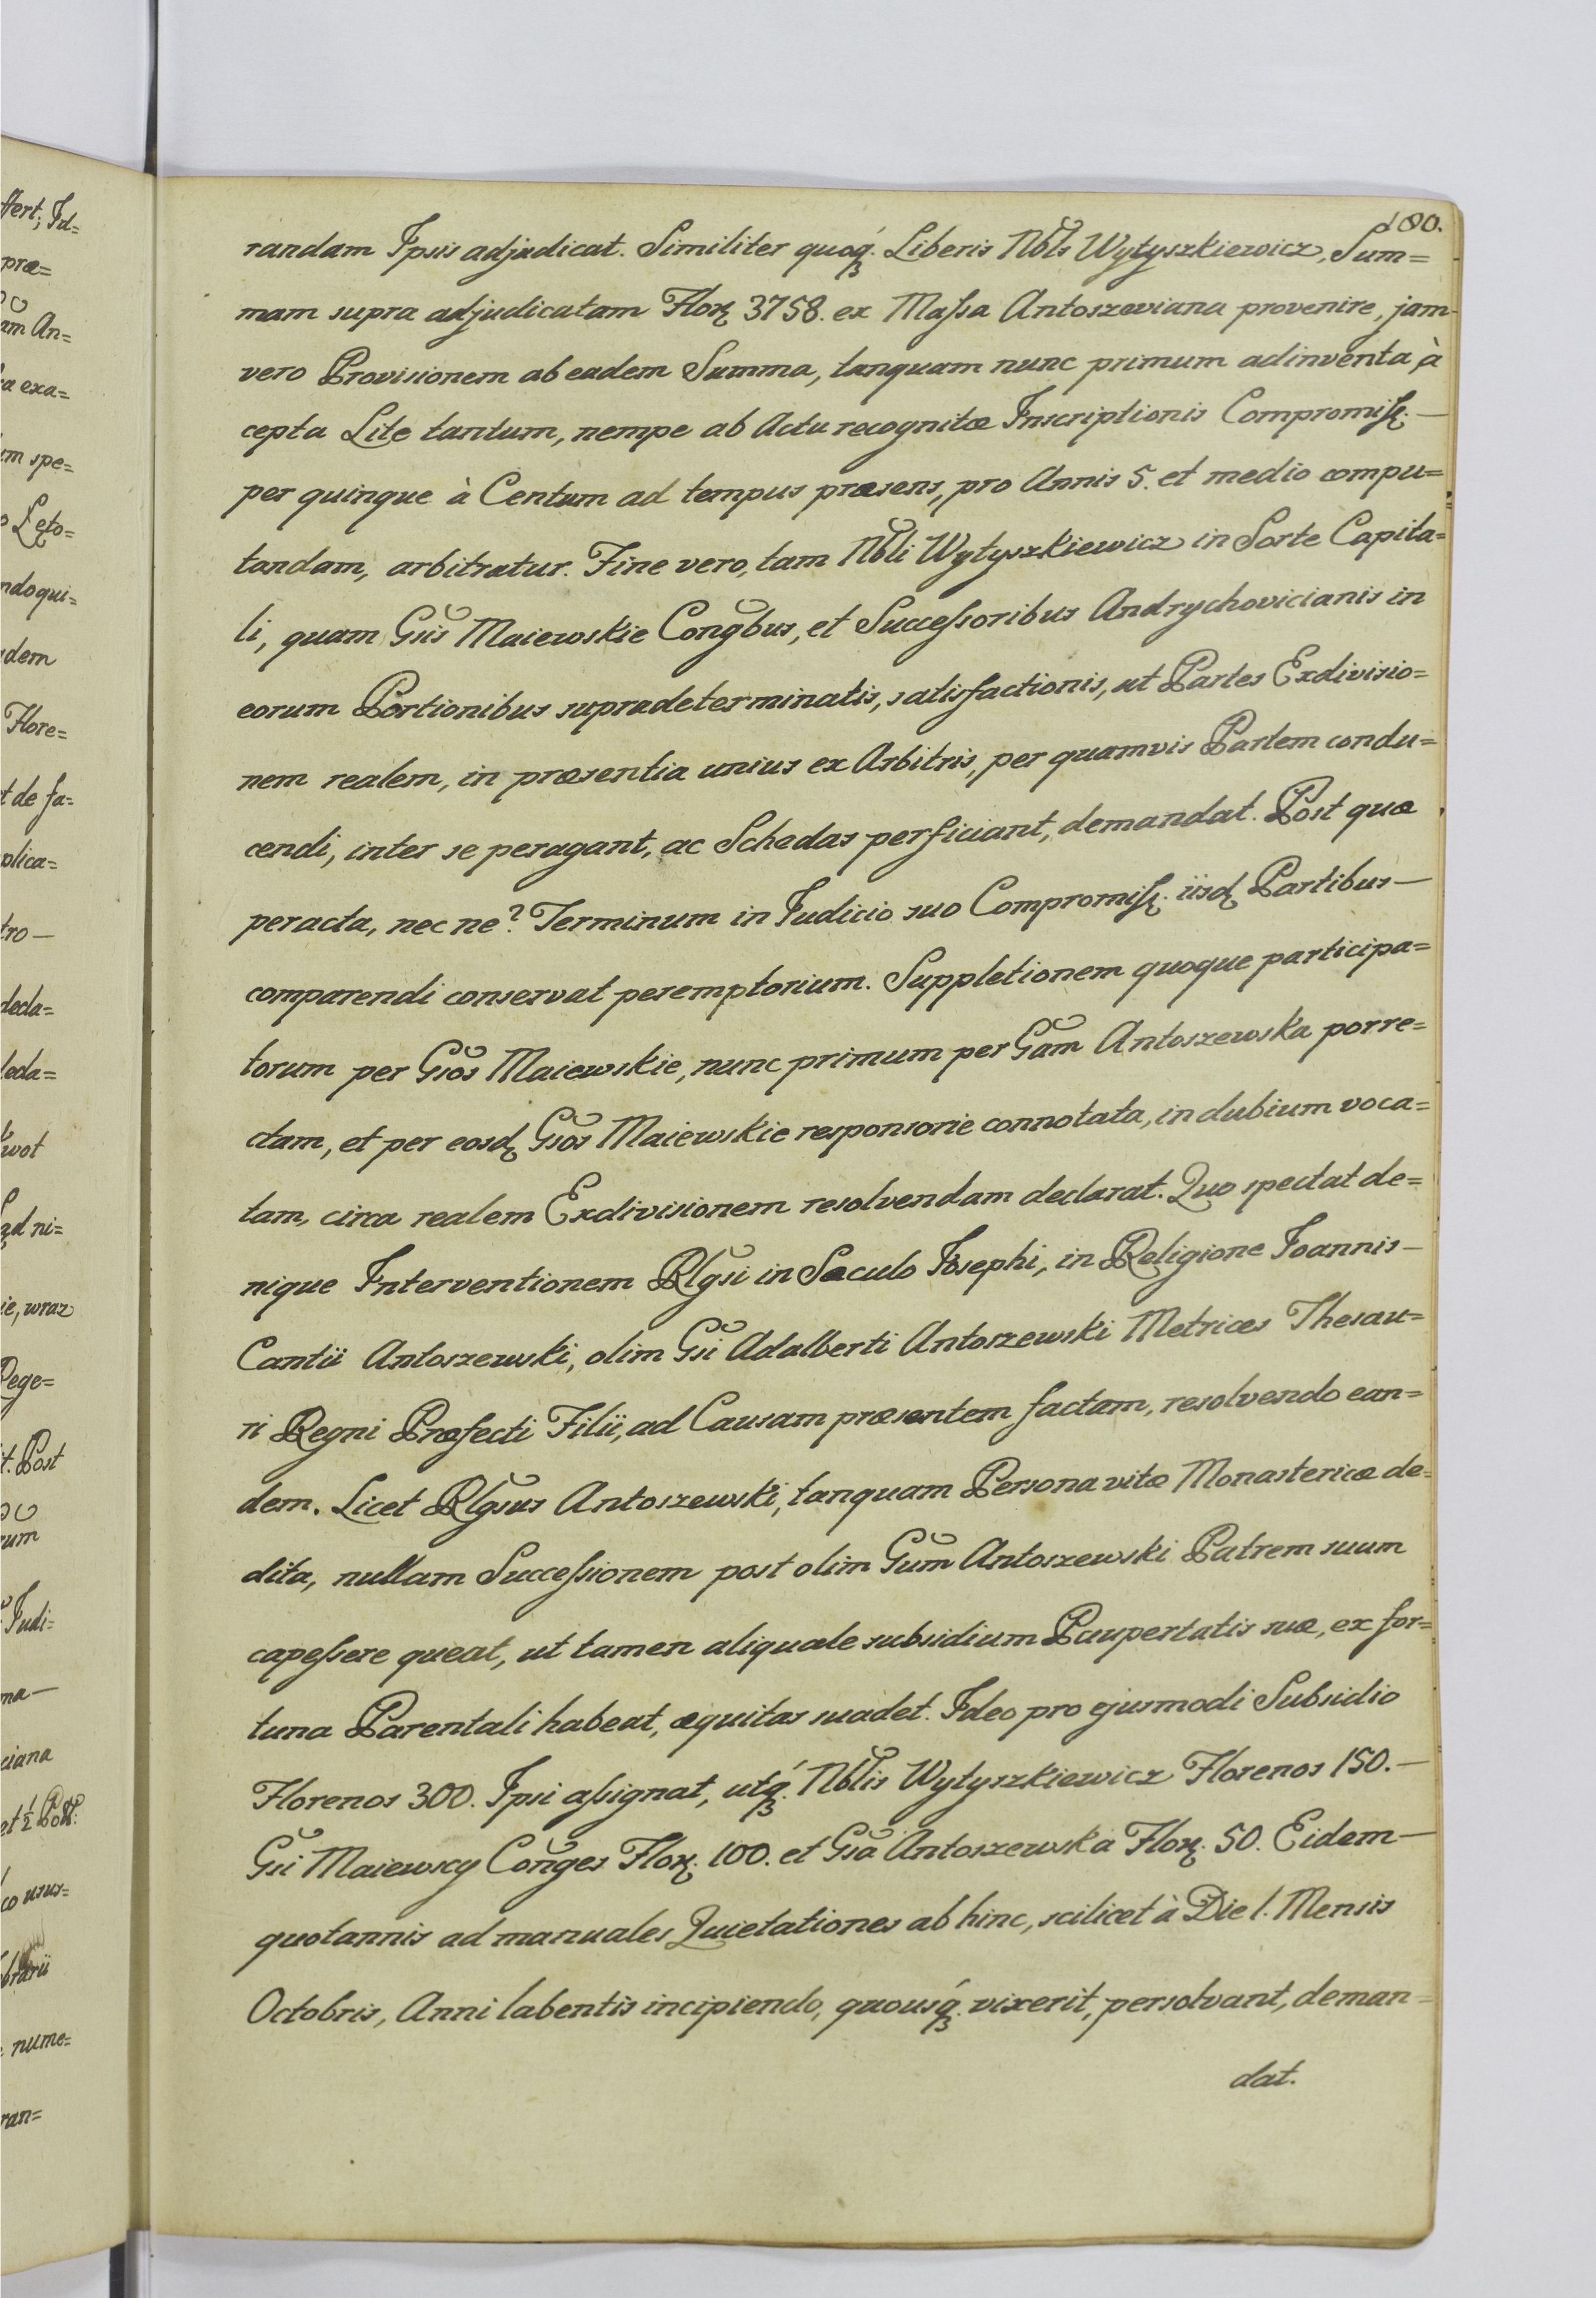 180.
randam Ipsis adjudicat. Similiter quoq́ꝫ. Liberis Nob̃ls Wytyszkiewicz, Sum=
mam supra adjudicatam Floꝝ 3758. ex Maſsa Antoszeviana provenire, jam
vero Provisionem ab eadem Summa, tanquam nunc primum adinventa, à
cepta Lite tantum, nempe ab Actu recognitæ Inscriptionis Compromiſſ. —
per quinque à Centum ad tempus præsens, pro Annis 5. et medio compu=
tandam, arbitratur. Fine vero, tam Nob̃li Wytyszkiewicz in Sorte Capita=
li, quam Gs̃is Maiewskie Cong̃bus, et Succeſsoribus Andrychovicianis in
eorum Portionibus supradeterminatis, satisfactionis, ut Partes Exdivisio=
nem realem, in præsentia unius ex Arbitris, per quamvis Partem condu=
cendi, inter se peragant, ac Schedas perficiant, demandat. Post quæ
peracta, nec ne? Terminum in Iudicio suo Compromiſſ. iisdꝫ Partibus —
comparendi conservat peremptorium. Suppletionem quoque participa=
torum per Gs̃os Maiewskie, nunc primum per Gs̃am Antoszewska porre=
ctam, et per eosdꝫ Gs̃os Maiewskie responsorie connotata, in dubium voca=
tam, circa realem Exdivisionem resolvendam declarat. Quo spectat de=
nique Interventionem Rlg̃si in Sæculo Iosephi, in Religione Ioannis —
Cantii Antoszewski, olim Gs̃i Adalberti Antoszewski Metrices Thesau=
ri Regni Præfecti Filii, ad Causam præsentem factam, resolvendo ean=
dem. Licet Rlg̃sus Antoszewski, tanquam Persona vitæ Monastericæ de=
dita, nullam Succeſsionem post olim Gs̃um Antoszewski Patrem suum
capeſsere queat, ut tamen aliquale subsidium Paupertatis suæ, ex for=
tuna Parentali habeat, æquitas suadet. Ideo pro ejusmodi Subsidio
Florenos 300. Ipsi aſsignat, utq́ꝫ. Nob̃lis Wytyszkiewicz Florenos 150. —
Gs̃i Maiewscy Cong̃es Floꝝ. 100. et Gs̃a Antoszewska Floꝝ. 50. Eidem —
quotannis ad manuales Quietationes ab hinc, scilicet à Die 1. Mensis
Octobris, Anni labentis incipiendo, quousq́ꝫ. vixerit, persolvant, deman=
dat.